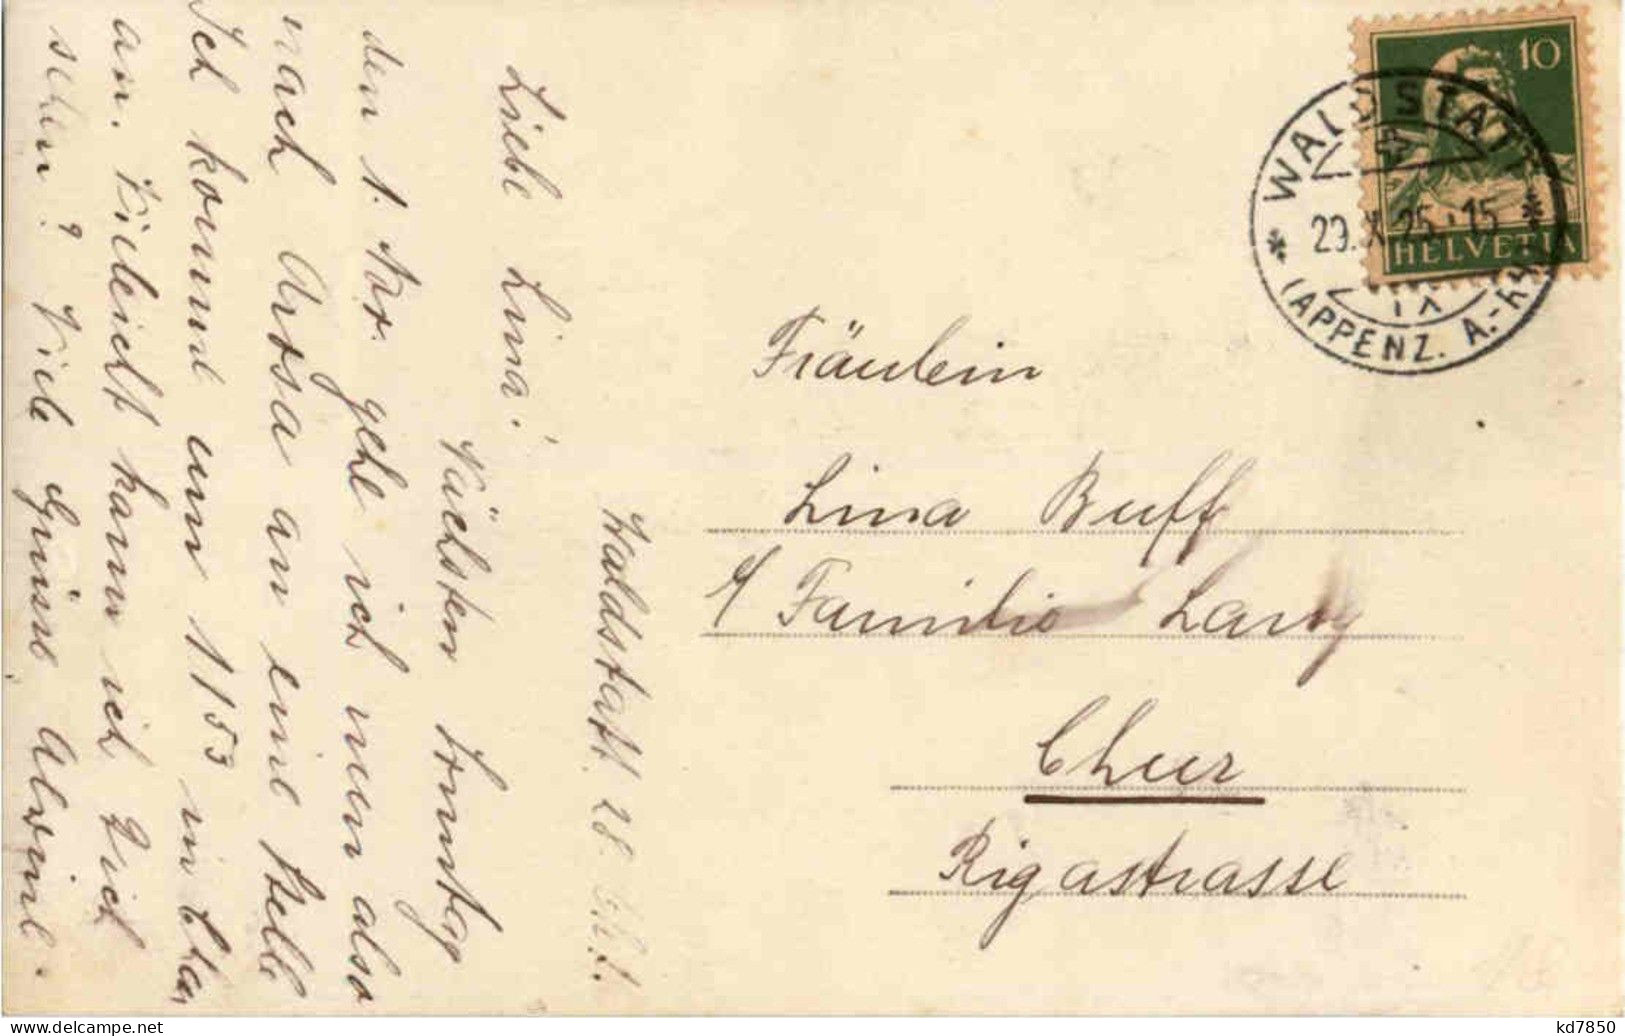 Waldstatt 28.
Liebe Lina!
Nächsten Sonntag
den 1. Nov. gehe ich nun also
nach Arosa an eine Stelle
Ich komme um 1153 in Chur
an. Vieleicht kann ich Dich
sehen? Viele Grüsse Alwine.
10
HELVETIA
* WALDSTATT *
29. X. 25. 15
IX
(APPENZ. A.-Rh.)
Fräulein
Lina Buff
Familie
Chur
Rigastrasse
18
kd7850